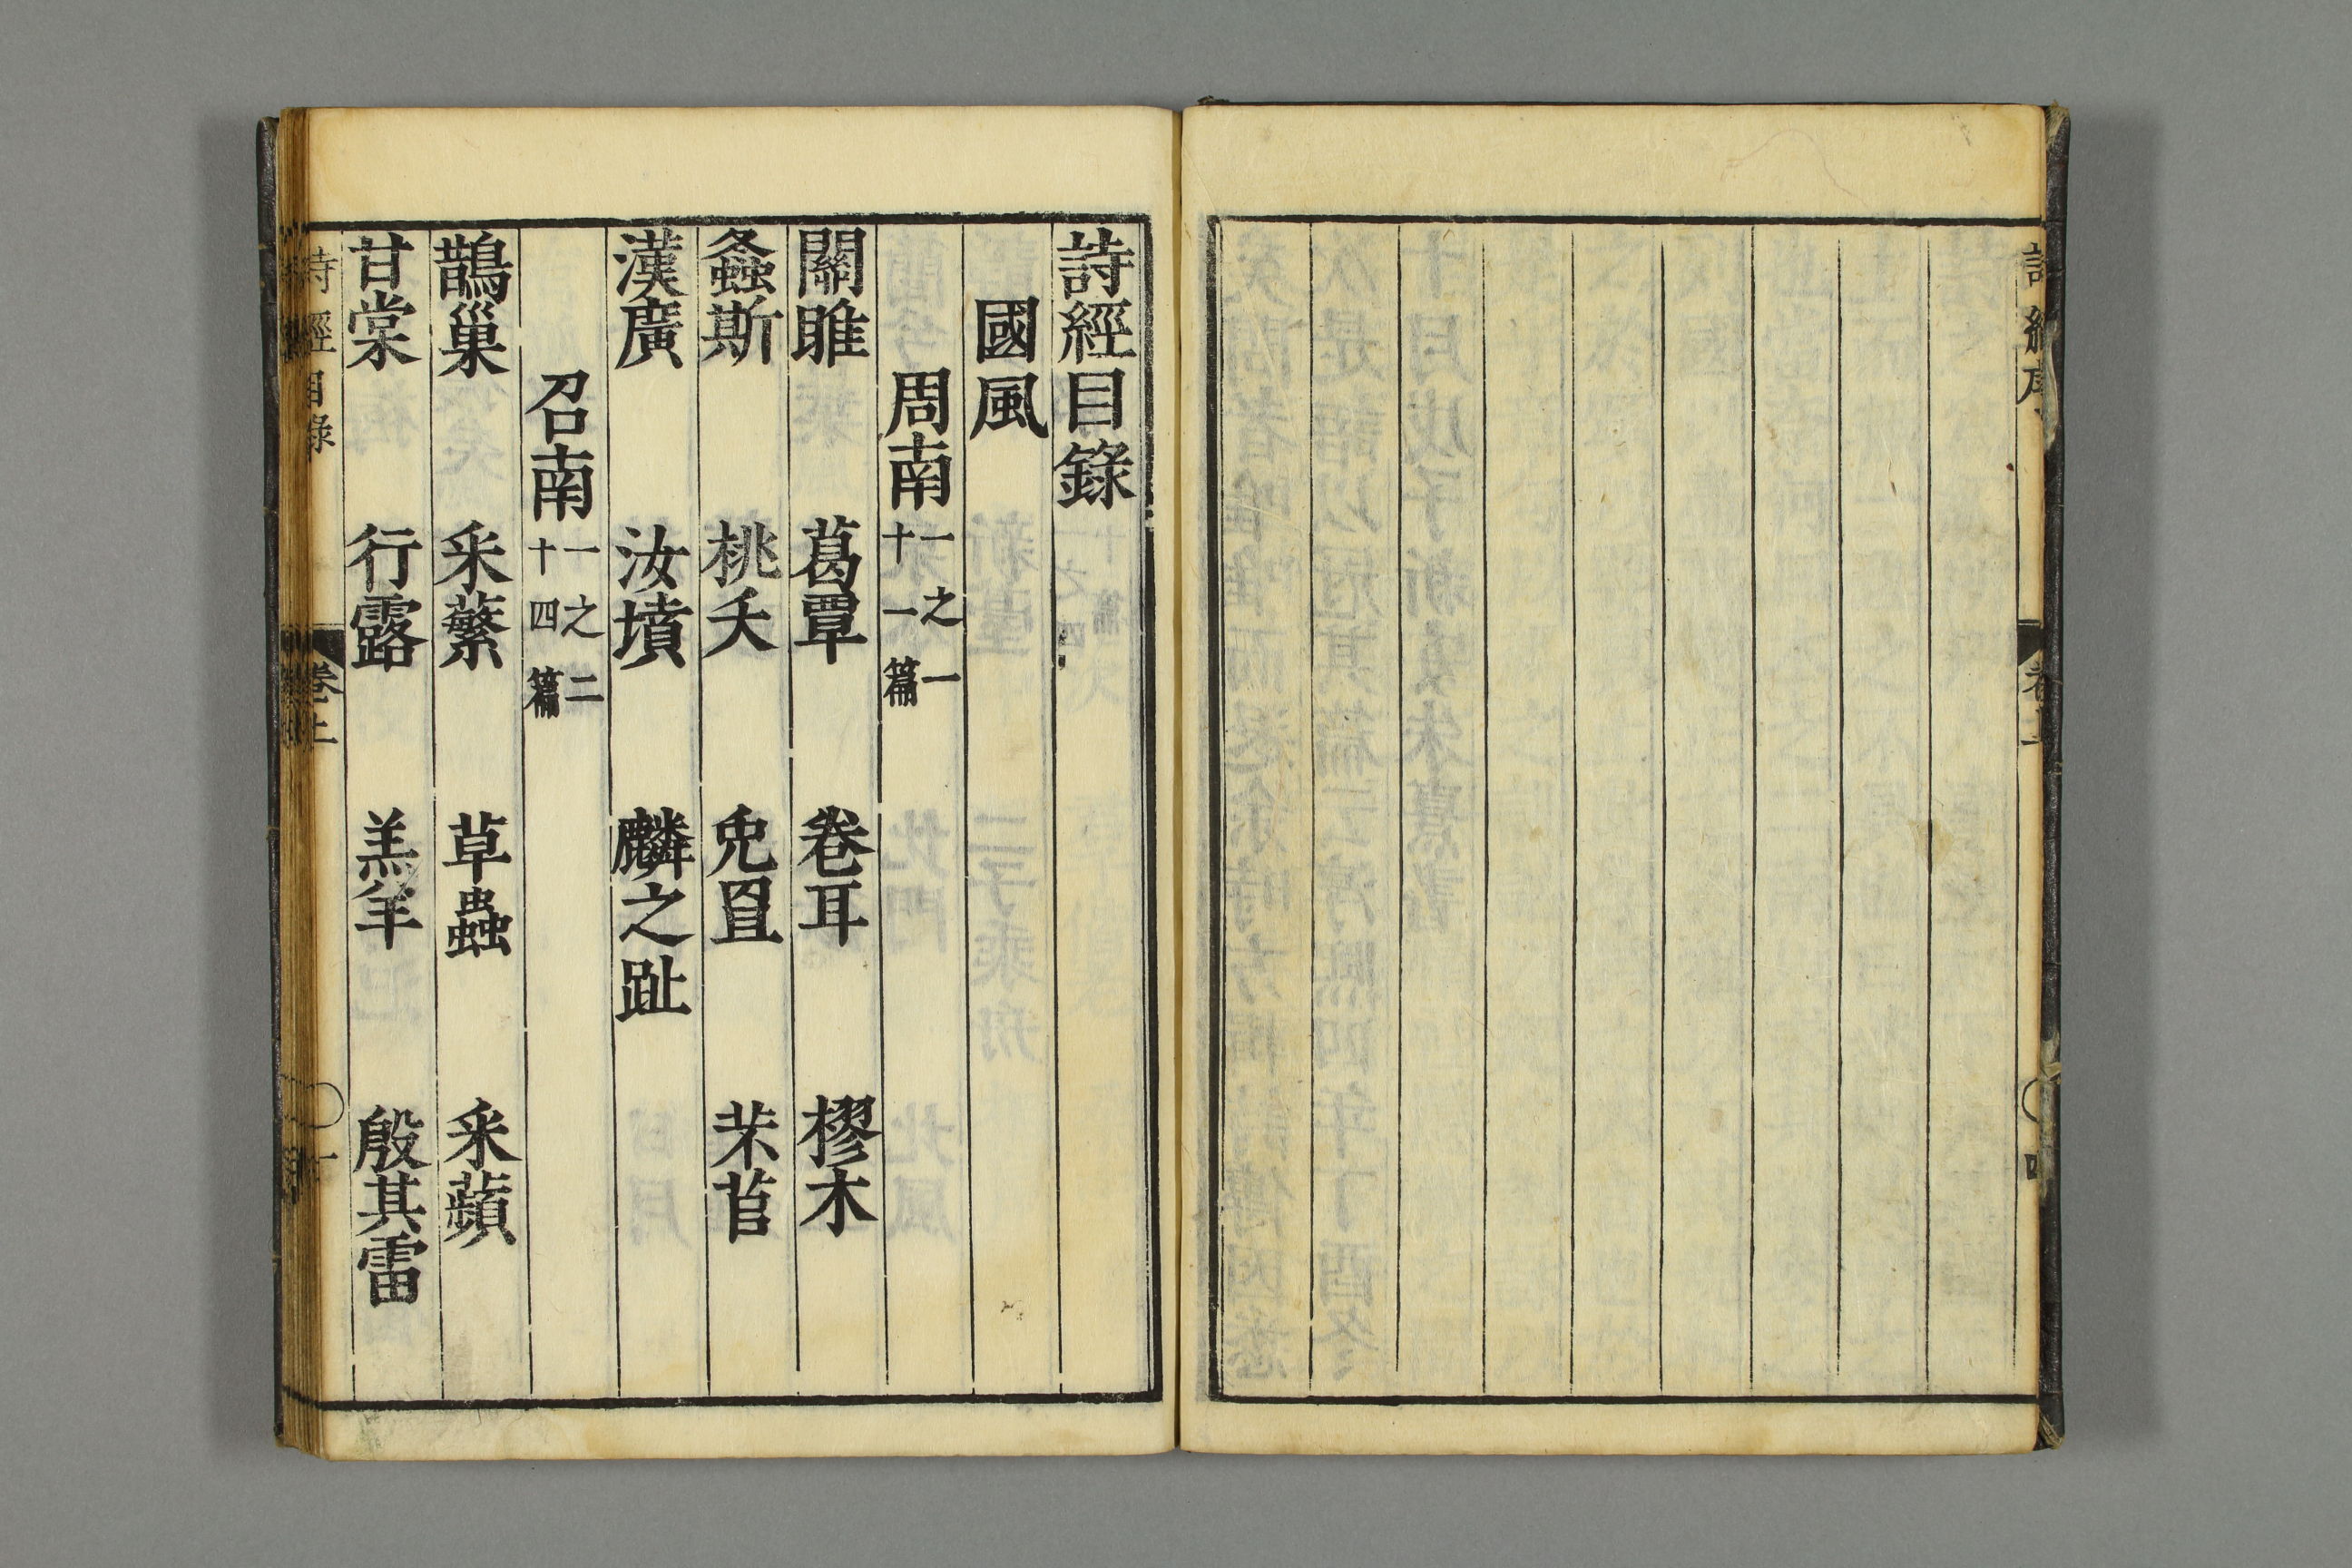 詩經目錄
國風
周南 一之一 十一篇
關雎 葛覃 卷耳 樛木
螽斯 桃夭 兎罝 芣苢
漢廣 汝墳 麟之趾
召南 一之二 十四篇
鵲巢 采蘩 草蟲 采蘋
甘棠 行露 羔羊 殷其雷
詩經目錄 卷上 一